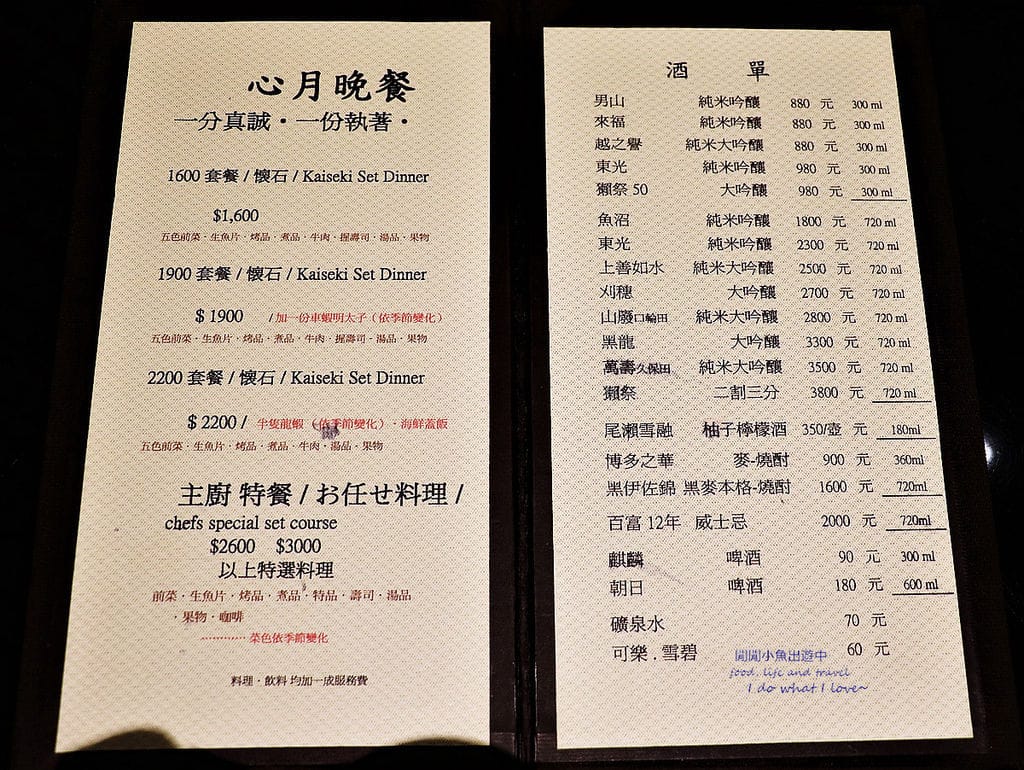 心月晚餐
一分真誠・一份執著・
1600 套餐 / 懷石 / Kaiseki Set Dinner
$1,600
五色前菜・生魚片・烤品・煮品・牛肉・握壽司・湯品・果物
1900 套餐 / 懷石 / Kaiseki Set Dinner
$ 1900 / 加一份車蝦明太子（依季節變化）
五色前菜・生魚片・烤品・煮品・牛肉・握壽司・湯品・果物
2200 套餐 / 懷石 / Kaiseki Set Dinner
$ 2200 / 半隻龍蝦（依季節變化）・海鮮蓋飯
五色前菜・生魚片・烤品・煮品・牛肉・湯品・果物
主廚 特餐 / お任せ料理 /
chefs special set course
$2600 $3000
以上特選料理
前菜・生魚片・烤品・煮品・特品・壽司・湯品
・果物・咖啡
············ 菜色依季節變化
料理・飲料 均加一成服務費
酒 單
男山 純米吟釀 880 元 300 ml
來福 純米吟釀 880 元 300 ml
越之譽 純米大吟釀 880 元 300 ml
東光 純米吟釀 980 元 300 ml
獺祭 50 大吟釀 980 元 300 ml
魚沼 純米吟釀 1800 元 720 ml
東光 純米吟釀 2300 元 720 ml
上善如水 純米大吟釀 2500 元 720 ml
刈穗 大吟釀 2700 元 720 ml
山廢口輪田 純米大吟釀 2800 元 720 ml
黑龍 大吟釀 3300 元 720 ml
萬壽久保田 純米大吟釀 3500 元 720 ml
獺祭 二割三分 3800 元 720 ml
尾瀨雪融 柚子檸檬酒 350/壺 180ml
博多之華 麥-燒酎 900 元 360ml
黑伊佐錦 黑麥本格-燒酎 1600 元 720ml
百富 12年 威士忌 2000 元 720ml
麒麟 啤酒 90 元 300 ml
朝日 啤酒 180 元 600 ml
礦泉水 70 元
可樂 . 雪碧 60 元
閒閒小魚出遊中
food, life and travel
I do what I love~